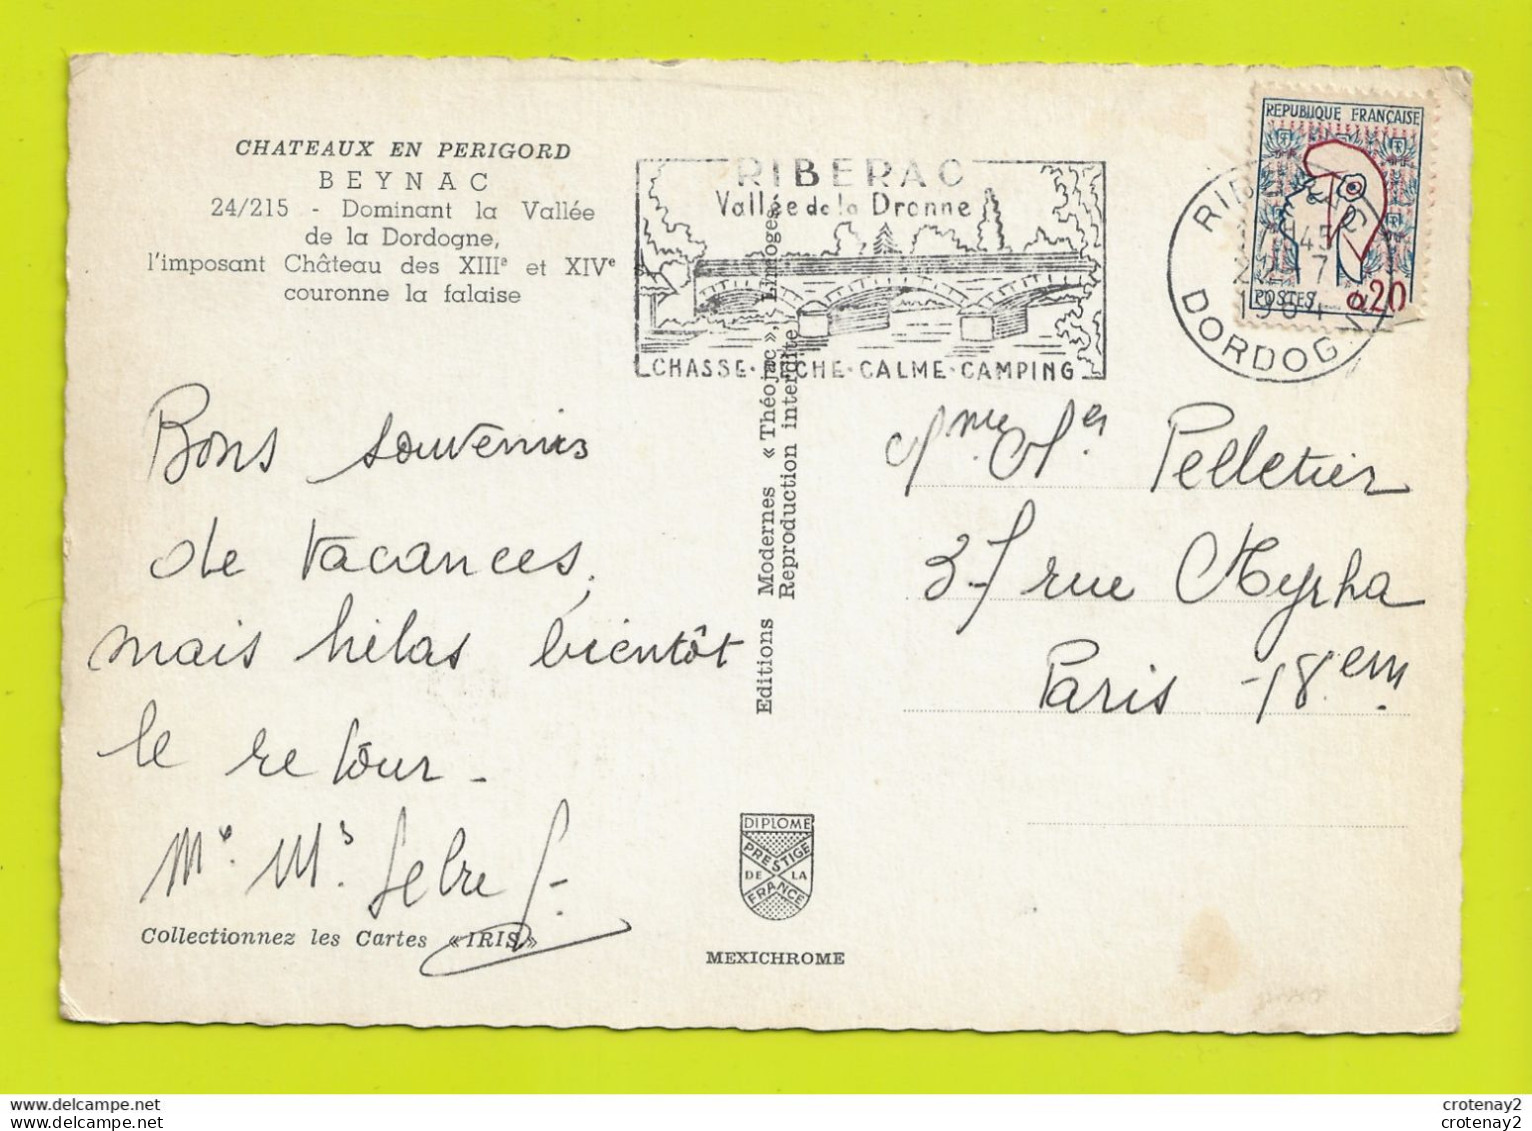 CHATEAUX EN PERIGORD
BEYNAC
24/215 - Dominant la Vallée
de la Dordogne,
l'imposant Château des XIIIe et XIVe s.
couronne la falaise
Bons souvenirs
de vacances,
mais hélas bientôt
le retour -
Collectionnez les Cartes «IRIS»
Editions Modernes « Théojac », Limoges
Reproduction interdite
RIBERAC
Vallée de la Dronne
CHASSE · PÊCHE · CALME · CAMPING
REPUBLIQUE FRANÇAISE
POSTES 0,20
RIBERAC
1964
DORDOGNE
Pelletier
rue Myrha
Paris - 18 em.
DIPLOME
PRESTIGE
DE LA
FRANCE
MEXICHROME
delcampe.net
delcampe.net
crotenay2
crotenay2